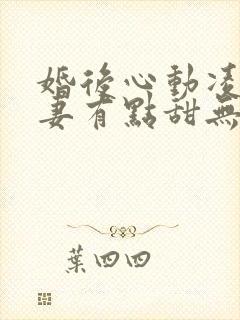 婚後心動凌
妻有點甜無
葉四四